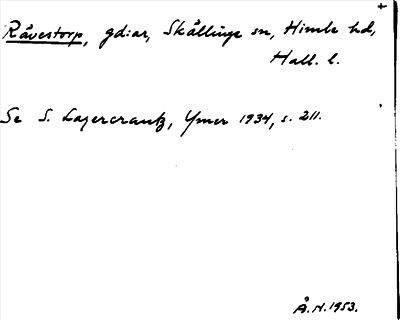 +
Råvestorp, gd:ar, Skällinge sn, Himle hd,
Hall. l.
Se S. Lagercrantz, Ymer 1934, s. 211.
Å.H. 1953.